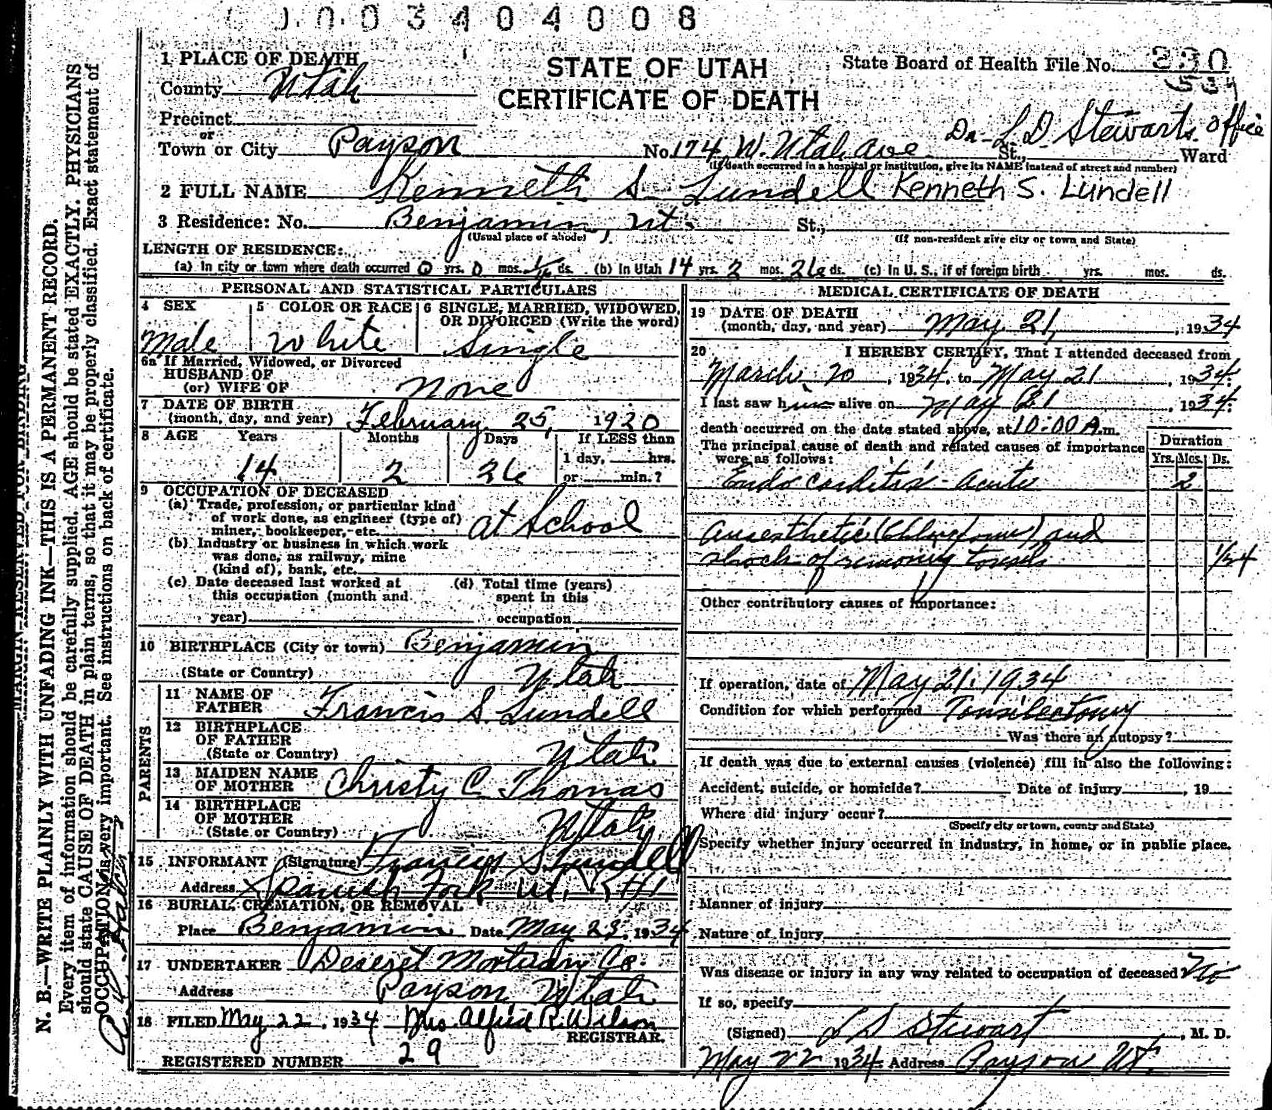 0003404008
1 PLACE OF DEATH
STATE OF UTAH
CERTIFICATE OF DEATH
State Board of Health File No. 330
534
County Utah
Precinct
or
Town or City Payson No. 174 W. Utah Ave St., Dr. L D. Stewarts office Ward
(If death occurred in a hospital or institution, give its NAME instead of street and number)
2 FULL NAME Kenneth S. Lundell Kenneth S. Lundell
3 Residence: No. Benjamin, Ut. St.,
(Usual place of abode) (If non-resident give city or town and State)
LENGTH OF RESIDENCE:
(a) In city or town where death occurred 0 yrs. 0 mos. ds. (b) In Utah 14 yrs. 2 mos. 26 ds. (c) In U. S., if of foreign birth yrs. mos. ds.
PERSONAL AND STATISTICAL PARTICULARS
4 SEX 5 COLOR OR RACE 6 SINGLE, MARRIED, WIDOWED, OR DIVORCED (Write the word)
Male White Single
6a If Married, Widowed, or Divorced
HUSBAND OF
(or) WIFE OF None
7 DATE OF BIRTH
(month, day, and year) February 25, 1920
8 AGE Years Months Days If LESS than
1 day, hrs.
14 2 26 or min.?
9 OCCUPATION OF DECEASED
(a) Trade, profession, or particular kind
of work done, as engineer (type of)
miner, bookkeeper, etc. at School
(b) Industry or business in which work
was done, as railway, mine
(kind of), bank, etc.
(c) Date deceased last worked at
this occupation (month and
year)
(d) Total time (years)
spent in this
occupation
10 BIRTHPLACE (City or town) Benjamin
(State or Country) Utah
PARENTS
11 NAME OF
FATHER Francis S. Lundell
12 BIRTHPLACE
OF FATHER
(State or Country) Utah
13 MAIDEN NAME
OF MOTHER Christy C. Thomas
14 BIRTHPLACE
OF MOTHER
(State or Country) Utah
15 INFORMANT (Signature) Francis S Lundell
Address Spanish Fork Ut, R#1
16 BURIAL, CREMATION, OR REMOVAL
Place Benjamin Date May 23, 1934
17 UNDERTAKER Deseret Mortuary Co.
Address Payson Utah
18 FILED May 22, 1934 Mrs. Alfred R. Wilson
REGISTRAR.
REGISTERED NUMBER 29
MEDICAL CERTIFICATE OF DEATH
19 DATE OF DEATH
(month, day, and year) May 21, 1934
20 I HEREBY CERTIFY, That I attended deceased from
March 20, 1934, to May 21, 1934.
I last saw him alive on May 21, 1934.
death occurred on the date stated above, at 10:00 A.m.
The principal cause of death and related causes of importance
were as follows:
Duration
Yrs. Mos. Ds.
Endocarditis - Acute 2
Anaesthetic (Chloroform) and
shock of removing tonsils 1/24
Other contributory causes of importance:
If operation, date of May 21, 1934
Condition for which performed Tonsilectomy
Was there an autopsy?
If death was due to external causes (violence) fill in also the following:
Accident, suicide, or homicide? Date of injury , 19
Where did injury occur?
(Specify city or town, county and State)
Specify whether injury occurred in industry, in home, or in public place.
Manner of injury
Nature of injury
Was disease or injury in any way related to occupation of deceased No
If so, specify
(Signed) L D Stewart, M. D.
May 22 1934 Address Payson Ut.
MARGIN RESERVED FOR BINDING
N. B.—WRITE PLAINLY WITH UNFADING INK—THIS IS A PERMANENT RECORD.
Every item of information should be carefully supplied. AGE should be stated EXACTLY. PHYSICIANS
should state CAUSE OF DEATH in plain terms, so that it may be properly classified. Exact statement of
OCCUPATION is very important. See instructions on back of certificate.